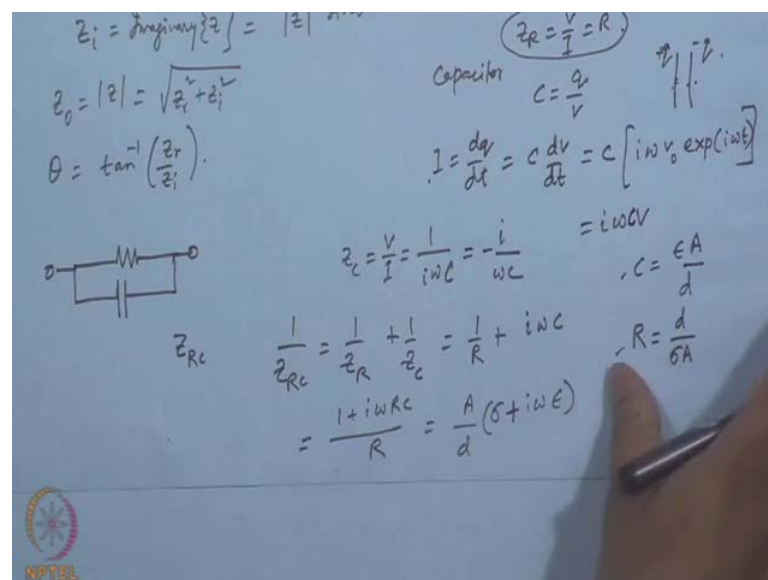 Z_i = Imaginary{Z} = |Z|
Z_0 = |Z| = √(Z_r² + Z_i²)
θ = tan⁻¹(Z_r/Z_i).
Z_R = V/I = R.
Capacitor C = q/V
+q -q.
I = dq/dt = C dV/dt = C [iωV_0 exp(iωt)]
= iωCV
Z_C = V/I = 1/iωC = -i/ωC
C = ϵA/d
Z_RC 1/Z_RC = 1/Z_R + 1/Z_C = 1/R + iωC
R = d/σA
= (1 + iωRC)/R = A/d (σ + iωϵ)
NPTEL